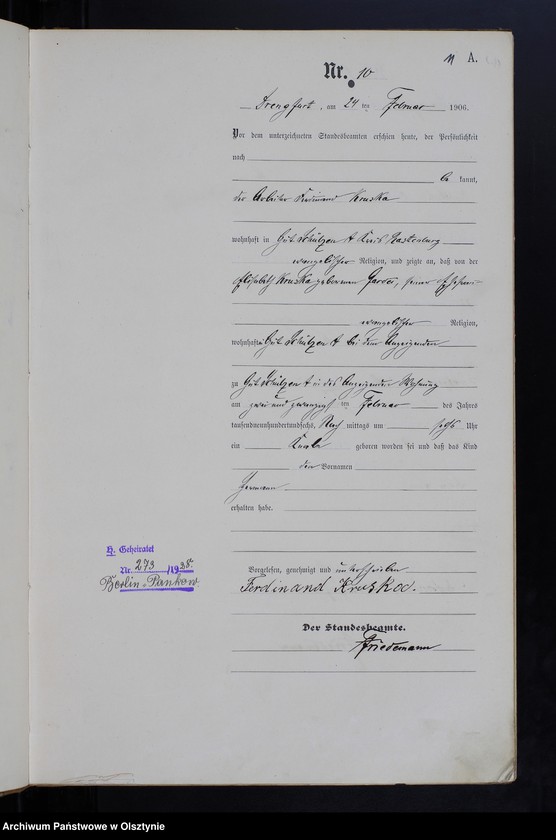 11 A.
Nr. 10
Drengfurt, am 24 ten Februar 1906.
Vor dem unterzeichneten Standesbeamten erschien heute, der Persönlichkeit
nach
be kannt,
der Arbeiter Ferdinand Kruska
wohnhaft in Gut Schülzen A Kreis Rastenburg
evangelischer Religion, und zeigte an, daß von der
Elisabeth Kruska geborenen seiner Ehefrau
evangelischer Religion,
wohnhaft Gut Schülzen A bei dem Anzeigenden
zu Gut Schülzen A in des Anzeigenden Wohnung
am zwei und zwanzigsten Februar des Jahres
tausendneunhundertundsechs, Nach mittags um sechs Uhr
ein Knabe geboren worden sei und daß das Kind
den Vornamen
Hermann
erhalten habe.
H. Geheiratet
Nr. 273 /1935.
Berlin-Pankow.
Vorgelesen, genehmigt und unterschrieben
Ferdinand Kruska.
Der Standesbeamte.
Friedemann
Archiwum Państwowe w Olsztynie